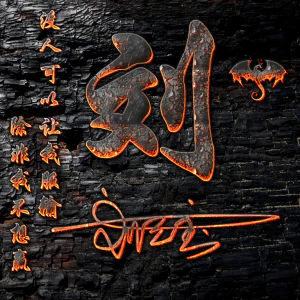 刻
没人可以
让我服输
除非我不想赢